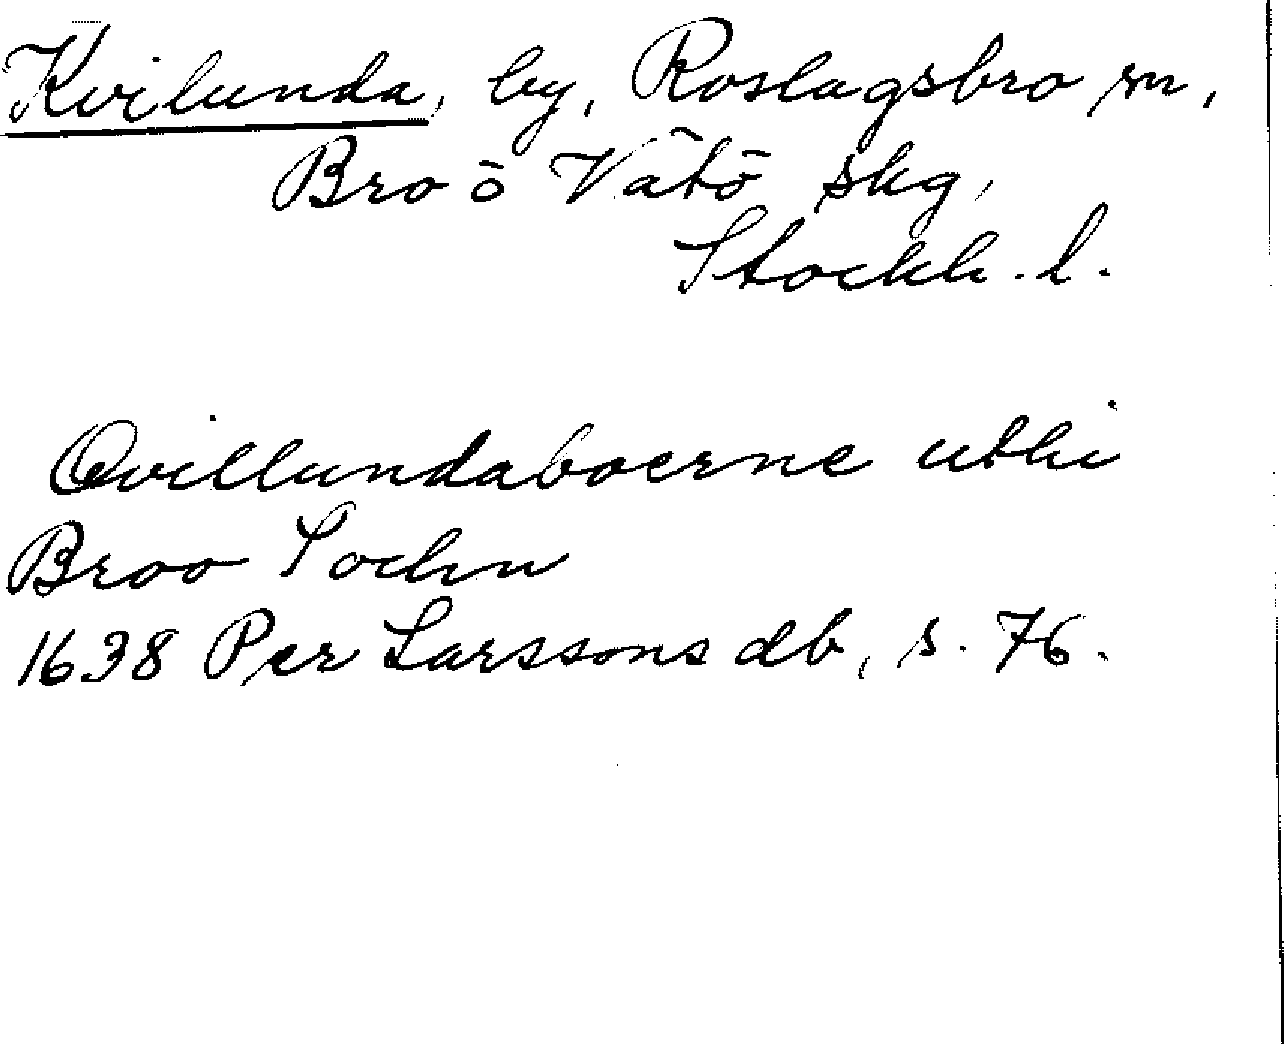 Kvilunda, by, Roslagsbro sn,
Bro ö Vätö skg,
Stockh. l.
Qvillundaboerne uthi
Broo Sochn
1638 Per Larssons db, s. 76.